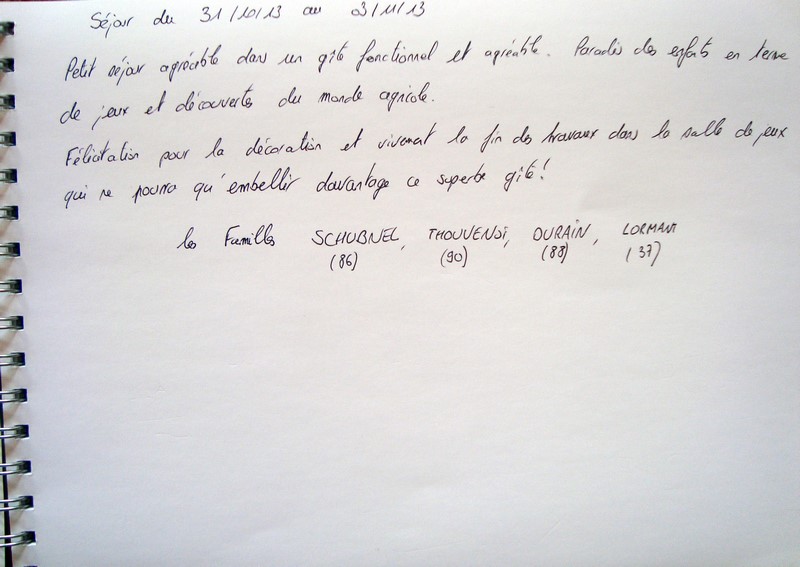 Séjour du 31/10/13 au 03/11/13
Petit séjour agréable dans un gîte fonctionnel et agréable. Paradis des enfants en terme
de jeux et découvertes du monde agricole.
Félicitation pour la décoration et vivement la fin des travaux dans la salle de jeux
qui ne pourra qu'embellir davantage ce superbe gîte!
les Familles SCHUBNEL, THOUVENOT, DURAIN, LORMANT
(86) (90) (88) (37)